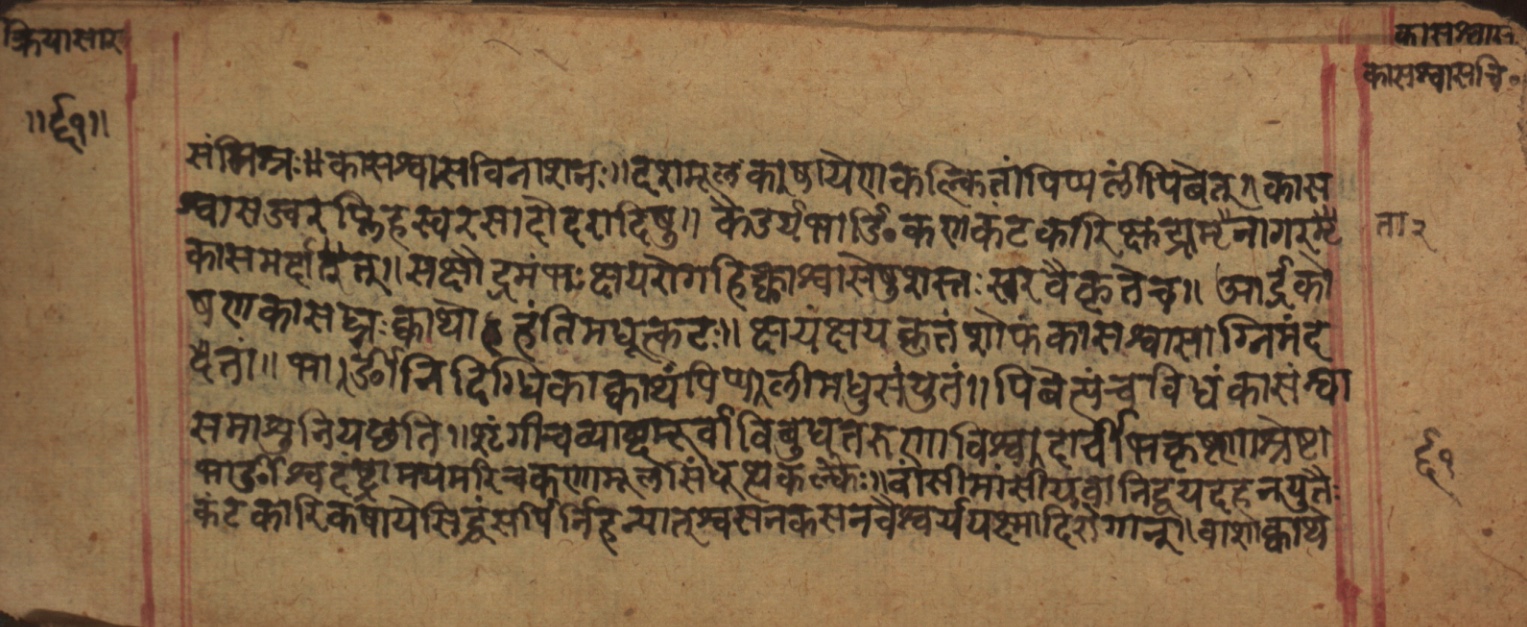 क्रियासार
कासश्वास
कासश्वासचि॰
संमिश्रः॥कासश्वासविनाशनः॥दशमूलकाषायेणकल्कितांपिप्पलींपिबेत्॥कास
श्वासज्वरप्लिहस्वरसादोदरादिषु॥कैडर्यभार्ङि॰कणकंटकारि
ता२
कासमर्दा॥सक्षौद्रमंभःक्षयरोगहिक्काश्वासेषुशस्तःस्वरवैकृतेच॥आर्द्रको
षणकासघ्नःक्वाथोहंतिमधूत्कटः॥क्षयंक्षयकृतंशोफंकासश्वासाग्निमंद
भार्ङीनिदिग्धिकाक्वाथंपिप्पलीमधुसंयुतं॥पिबेत्पंचविधंकासंश्वा
समाशुनियछति॥शृंगीचव्यामूर्वाविबुधतरुकणाविश्वदार्वी
भार्ङीश्वदंष्ट्रामयमरिचकणामूलसिंधूत्थकल्कैः॥वासीमांसीयवानिद्वयदहनयुतैः
कंटकारिकषायेसिद्धंसर्पिर्निहन्यात्श्वसनकसनवैश्वर्ययक्ष्मादिरोगान्॥वाशाक्वाथ